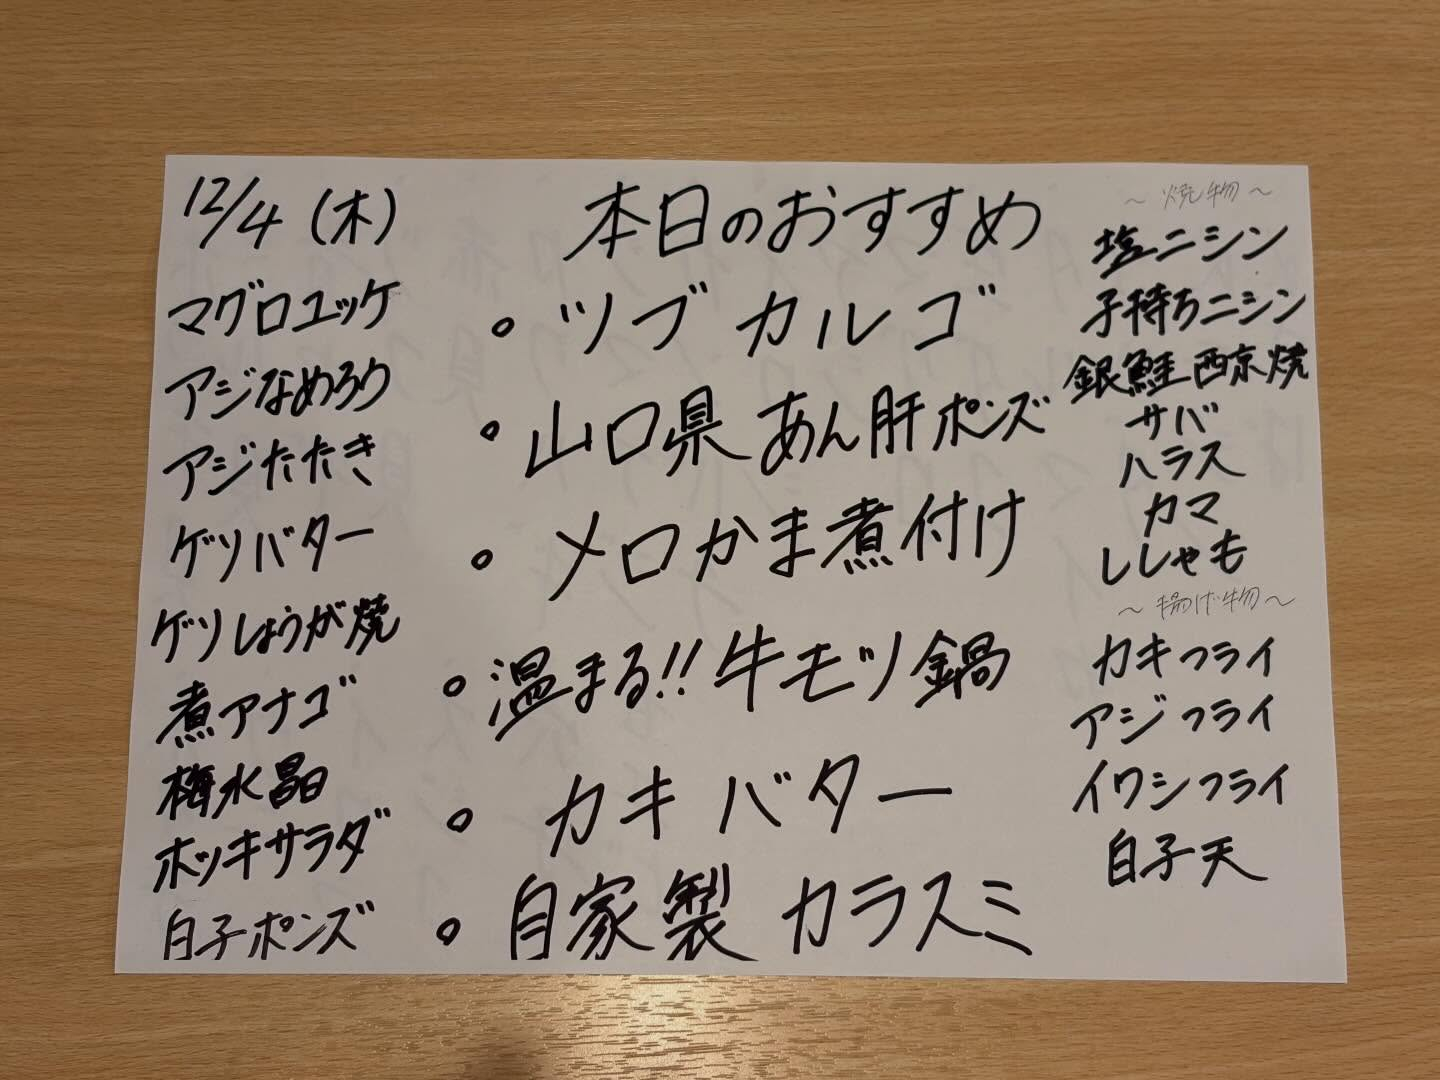 12/4(木)
マグロユッケ
アジなめろう
アジたたき
ゲソバター
ゲソしょうが焼
煮アナゴ
梅水晶
ホッキサラダ
白子ポンズ
本日のおすすめ
。ツブカルゴ
。山口県 あん肝ポンズ
。メロかま煮付け
。温まる!!牛モツ鍋
。カキバター
。自家製 カラスミ
～焼物～
塩ニシン
子持ちニシン
銀鮭西京焼
サバ
ハラス
カマ
ししゃも
～揚げ物～
カキフライ
アジフライ
イワシフライ
白子天